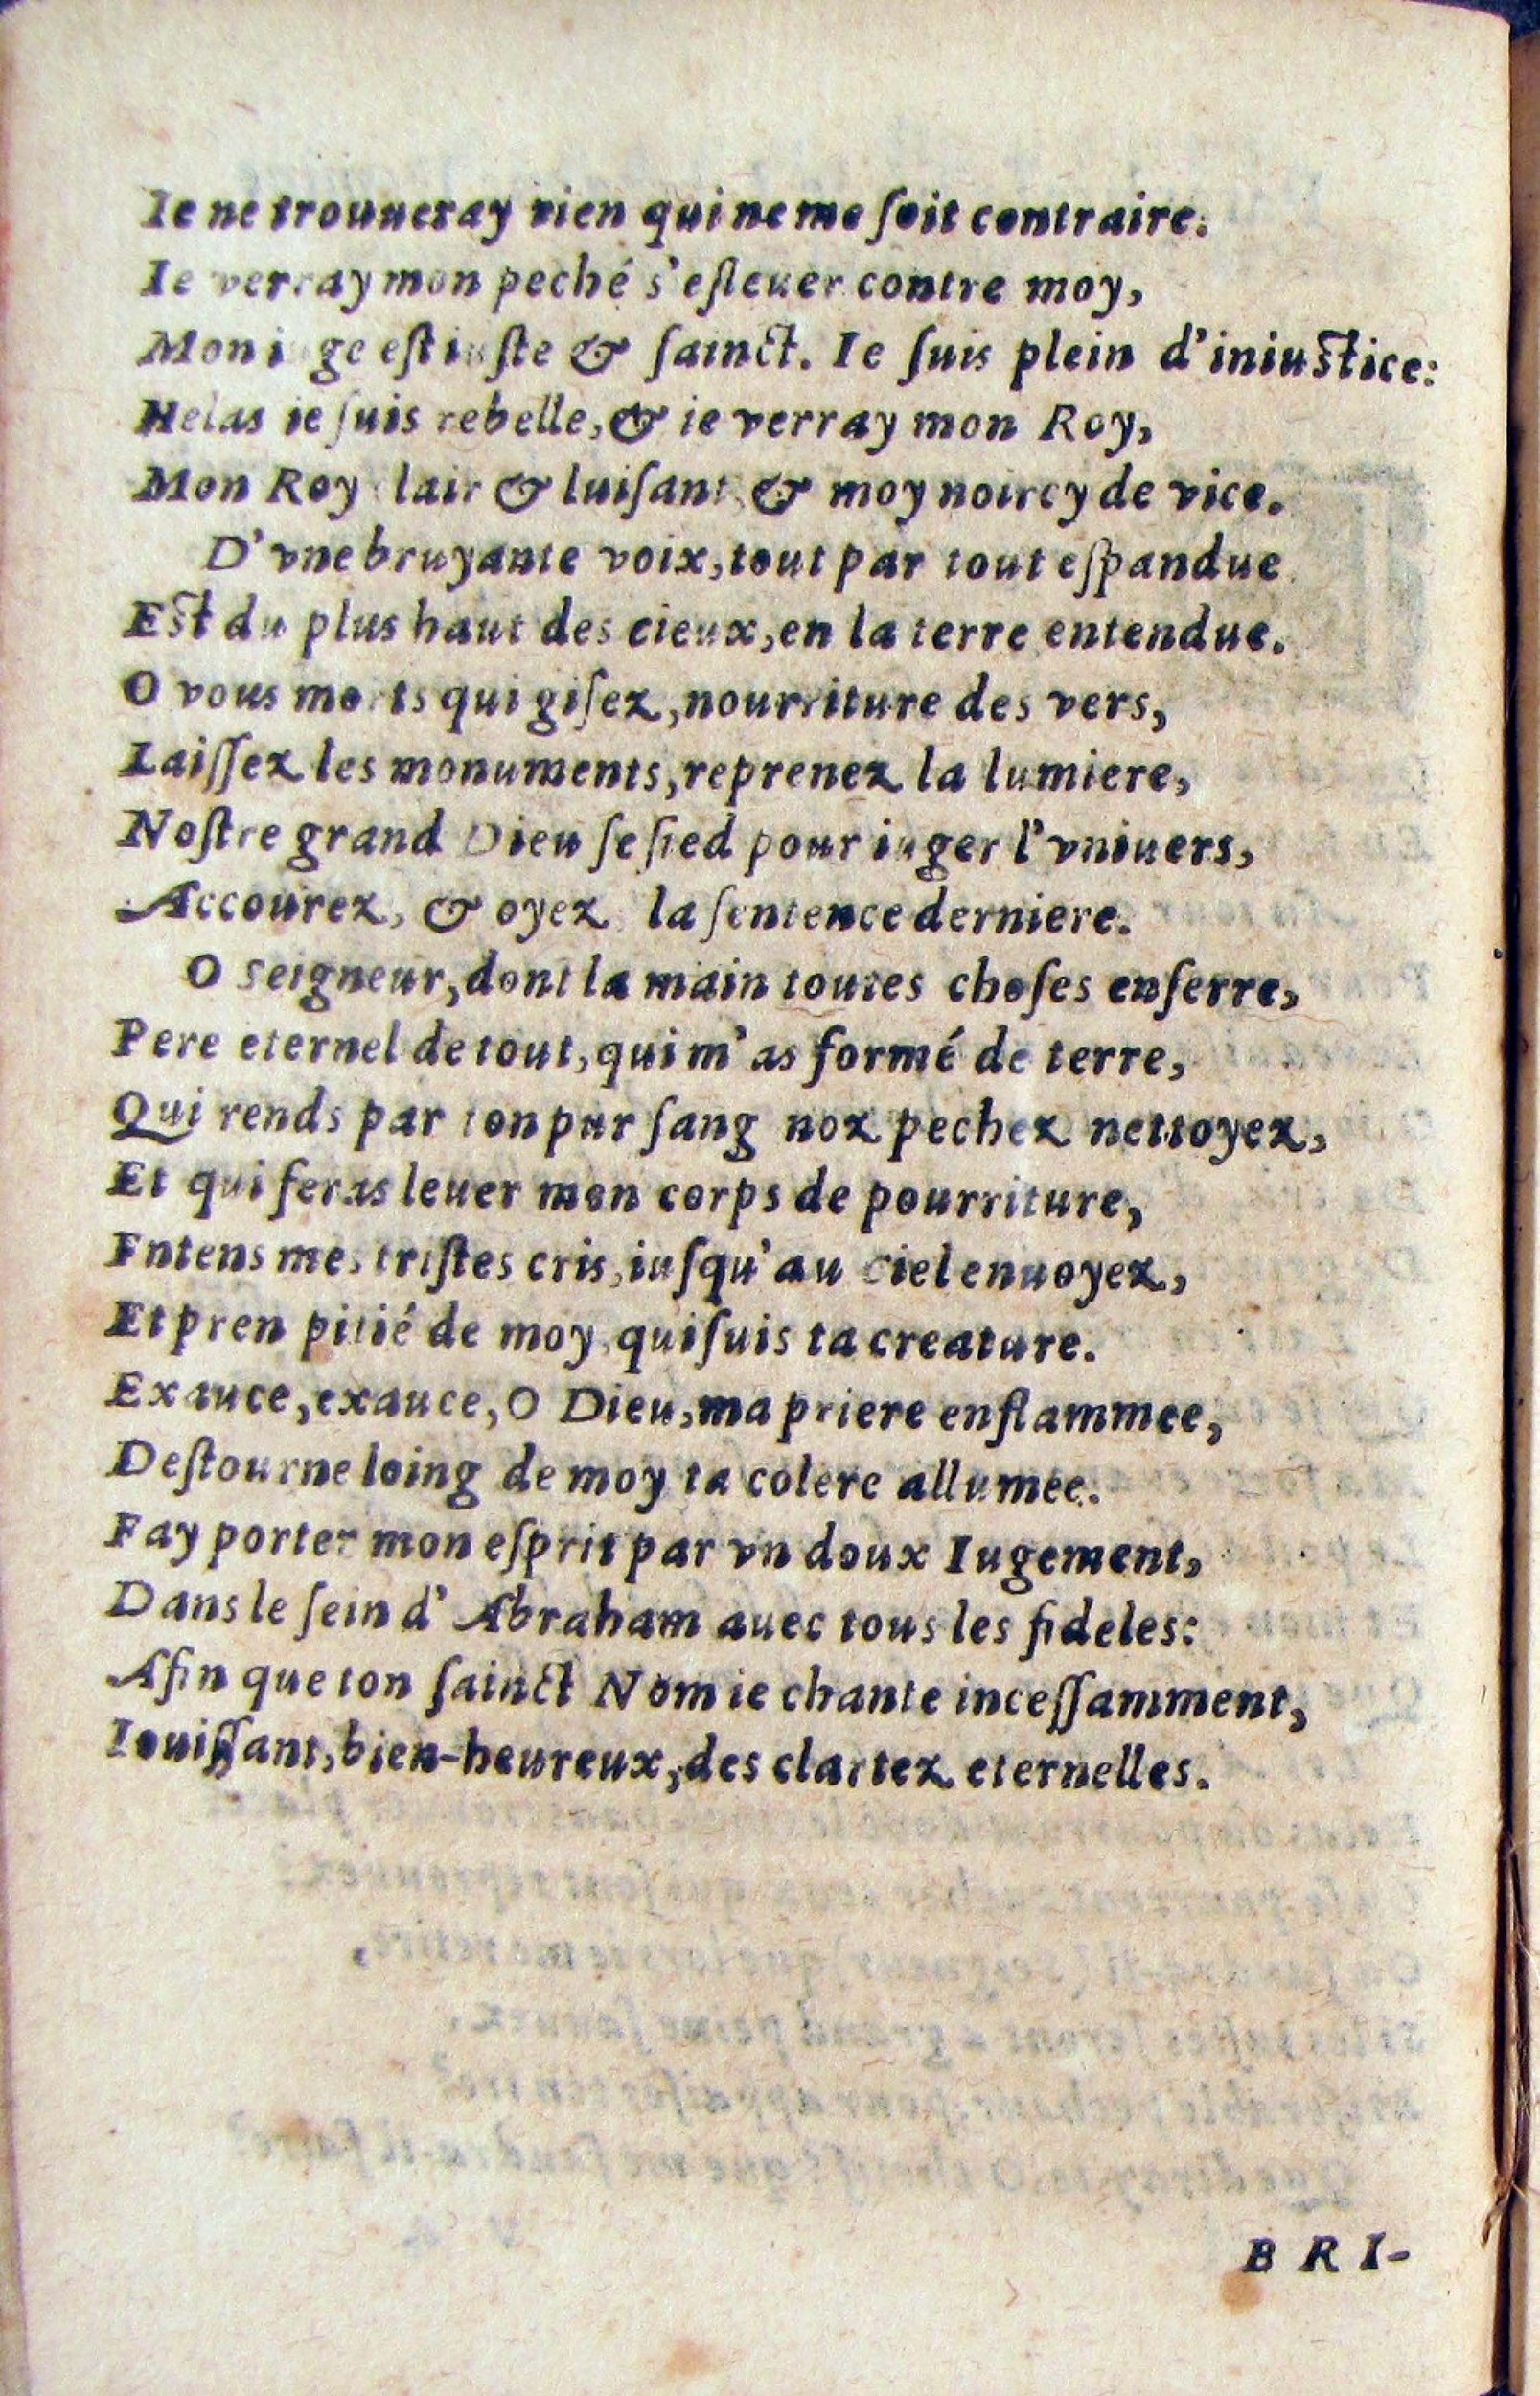 Ie ne trouueray rien qui ne me ſoit contraire:
Ie verray mon peché s'eſleuer contre moy,
Mon iuge eſt iuſte & ſainct. Ie ſuis plein d'iniuſtice:
Helas ie ſuis rebelle, & ie verray mon Roy,
Mon Roy clair & luiſant & moy noircy de vice.
D'vne bruyante voix, tout par tout eſpandue
Eſt du plus haut des cieux, en la terre entendue.
O vous morts qui giſez, nourriture des vers,
Laiſſez les monuments, reprenez la lumiere,
Noſtre grand Dieu ſe ſied pour iuger l'vniuers,
Accourez, & oyez la ſentence derniere.
O Seigneur, dont la main toutes choſes enſerre,
Pere eternel de tout, qui m'as formé de terre,
Qui rends par ton pur ſang noz pechez nettoyez,
Et qui feras leuer mon corps de pourriture,
Entens mes triſtes cris, iuſqu'au Ciel enuoyez,
Et pren pitié de moy, qui ſuis ta creature.
Exauce, exauce, O Dieu, ma priere enflammee,
Deſtourne loing de moy ta colere allumee.
Fay porter mon eſprit par vn doux Iugement,
Dans le ſein d'Abraham auec tous les fideles:
Afin que ton ſainct Nom ie chante inceſſamment,
Iouiſſant, bien-heureux, des clartez eternelles.
B R I-